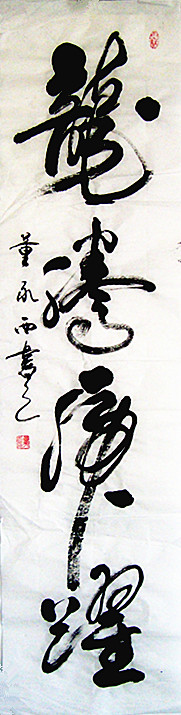 龍騰虎躍
董永西書之